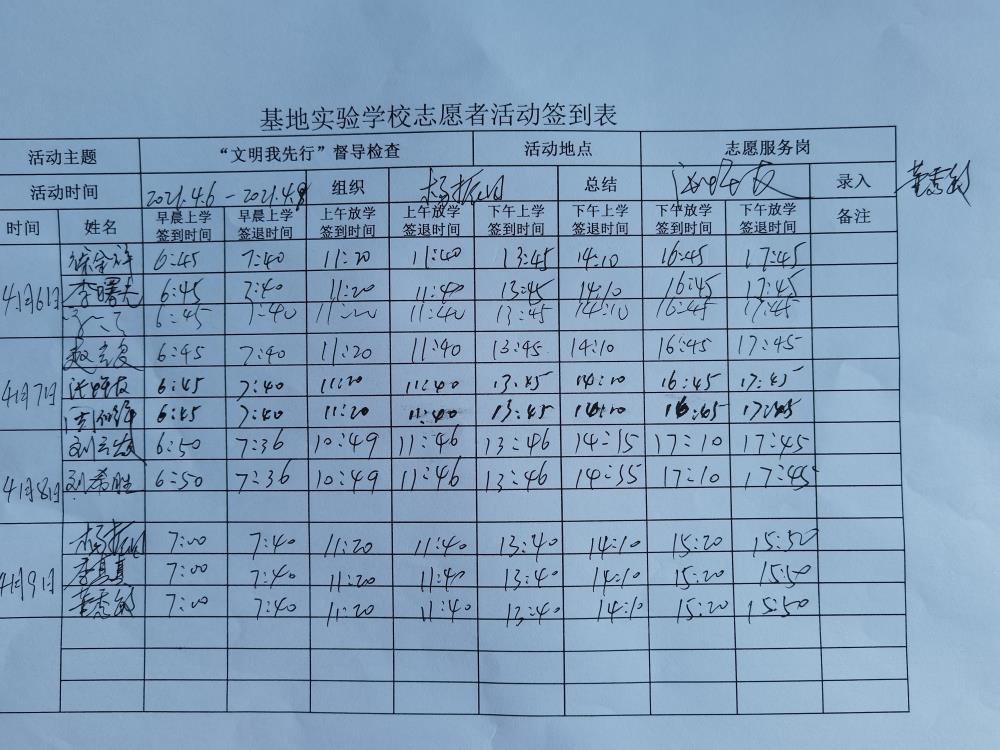 基地实验学校志愿者活动签到表
活动主题 “文明我先行”督导检查 活动地点 志愿服务岗
活动时间 2021.4.6-2021.4.8 组织 杨振 总结 录入
时间 姓名 早晨上学签到时间 早晨上学签退时间 上午放学签到时间 上午放学签退时间 下午上学签到时间 下午上学签退时间 下午放学签到时间 下午放学签退时间 备注
6:45 7:40 11:20 11:40 13:45 14:10 16:45 17:45
4月6日 李曙光 6:45 7:40 11:20 11:40 13:45 14:10 16:45 17:45
6:45 7:40 11:20 11:40 13:45 14:10 16:45 17:45
6:45 7:40 11:20 11:40 13:45 14:10 16:45 17:45
4月7日 6:45 7:40 11:20 11:40 13:45 14:10 16:45 17:45
6:45 7:40 11:20 11:40 13:45 14:10 16:45 17:45
刘 6:50 7:36 10:49 11:46 13:46 14:15 17:10 17:45
4月8日 刘希胜 6:50 7:36 10:49 11:46 13:46 14:55 17:10 17:45
杨振 7:00 7:40 11:20 11:40 13:40 14:10 15:20 15:50
4月9日 李真真 7:00 7:40 11:20 11:40 13:40 14:10 15:20 15:50
7:00 7:40 11:20 11:40 13:40 14:10 15:20 15:50